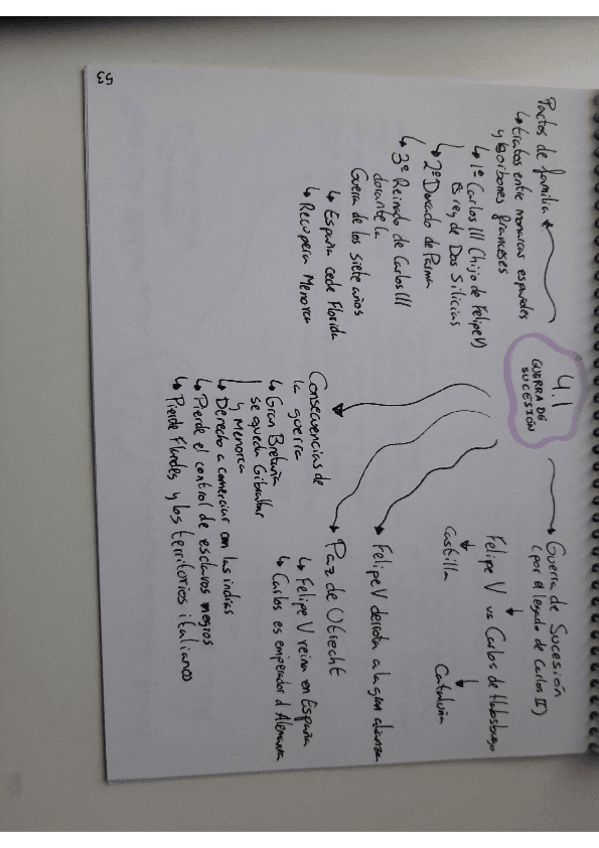 4.1
GUERRA DE
SUCESIÓN
Pactos de familia
↳ tratos entre monarcas españoles
y Borbones franceses
↳ 1º Carlos III (hijo de Felipe V)
es rey de Dos Silicias
↳ 2º Ducado de Parma
↳ 3º Reinado de Carlos III
durante la
Guerra de los Siete años
↳ España cede Florida
↳ Recupera Menorca
Guerra de Sucesión
(por el legado de Carlos II)
Felipe V vs Carlos de Habsburgo
Castilla
Cataluña
Felipe V derrota a la gran alianza
Paz de Utrecht
↳ Felipe V reina en España
↳ Carlos es emperador d Alemania
Consecuencias de
la guerra
↳ Gran Bretaña
se queda Gibraltar
y Menorca
↳ Derecho a comerciar con las indias
↳ Pierde el control de esclavos negros
↳ Pierde Flandes y los territorios italianos
53